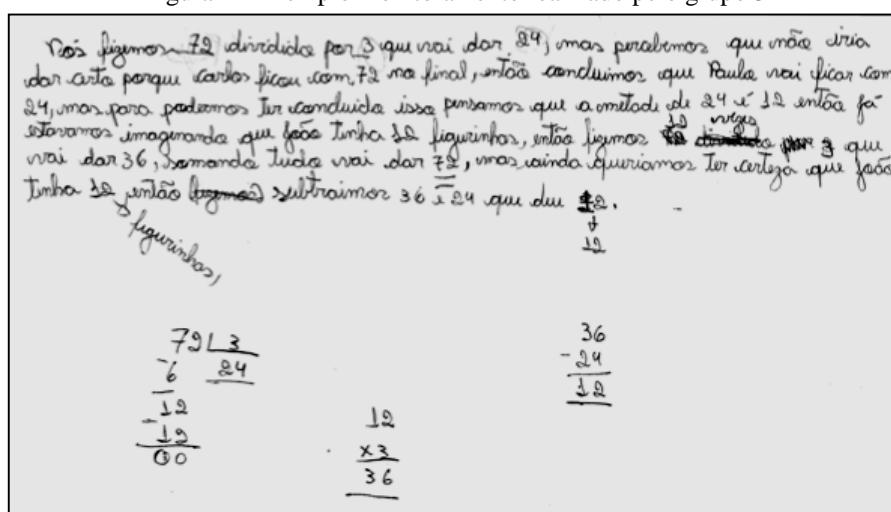 Nós fizemos 72 dividido por 3 que vai dar 24, mas percebemos que não iria
dar certo porque carlos ficou com 72 no final, então concluimos que Paula vai ficar com
24, mas para podermos ter concluido isso pensamos que a metade de 24 é 12 então já
estavamos imaginando que João tinha 12 figurinhas, então fizemos 12 vezes 3 que
vai dar 36, somando tudo vai dar 72, mas ainda queriamos ter certeza que João
tinha 12 figurinhas, então subtraimos 36 e 24 que deu 12.
12
72 3
-6 24
12
-12
00
12
x3
36
36
-24
12